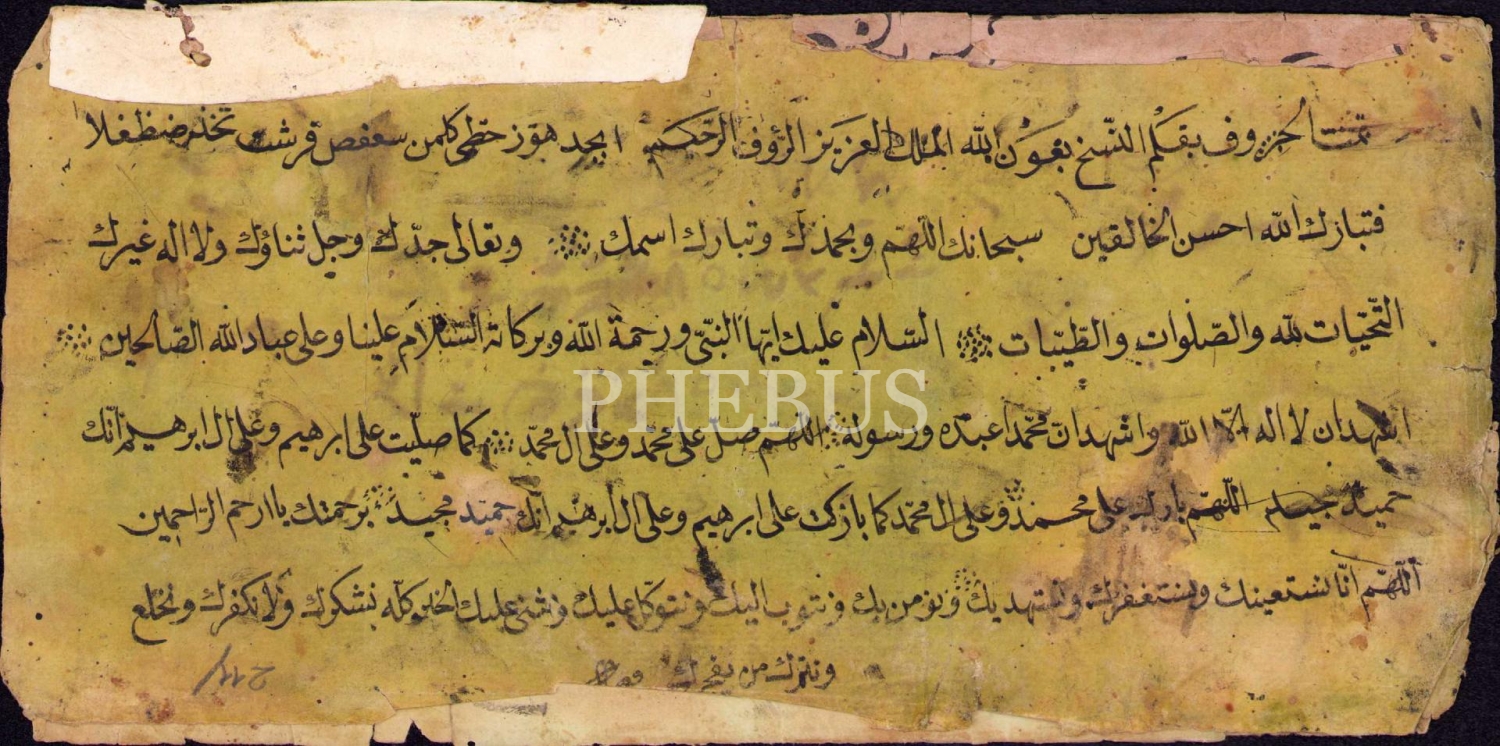 تمت الحروف بقلم النسخ بعون الله الملك العزيز الرؤف الرحيم ابجد هوز حطى كلمن سعفص قرشت ثخذ ضظغلا
فتبارك الله احسن الخالقين سبحانك اللهم وبحمدك وتبارك اسمك وتعالى جدّك وجل ثناؤك ولا اله غيرك
التّحيّات لله والصّلوات والطّيّبات السّلام عليك ايّها النّبىّ ورحمة الله وبركاته السّلام علينا وعلى عباد الله الصّالحين
PHEBUS
اشهد ان لا اله الّا الله واشهد انّ محمّدا عبده ورسوله اللهمّ صلّ على محمّد وعلى ال محمّد كما صلّيت على ابرهيم وعلى ال ابرهيم انّك
حميد مجيد اللّهمّ بارك على محمد وعلى ال محمّد كما باركت على ابرهيم وعلى ال ابرهيم انّك حميد مجيد برحمتك يا ارحم الرّاحمين
اللّهمّ انّا نستعينك ونستغفرك ونستهديك ونؤمن بك ونتوب اليك ونتوكّل عليك ونثنى عليك الخير كلّه نشكرك ولا نكفرك ونخلع
ونترك من يفجرك